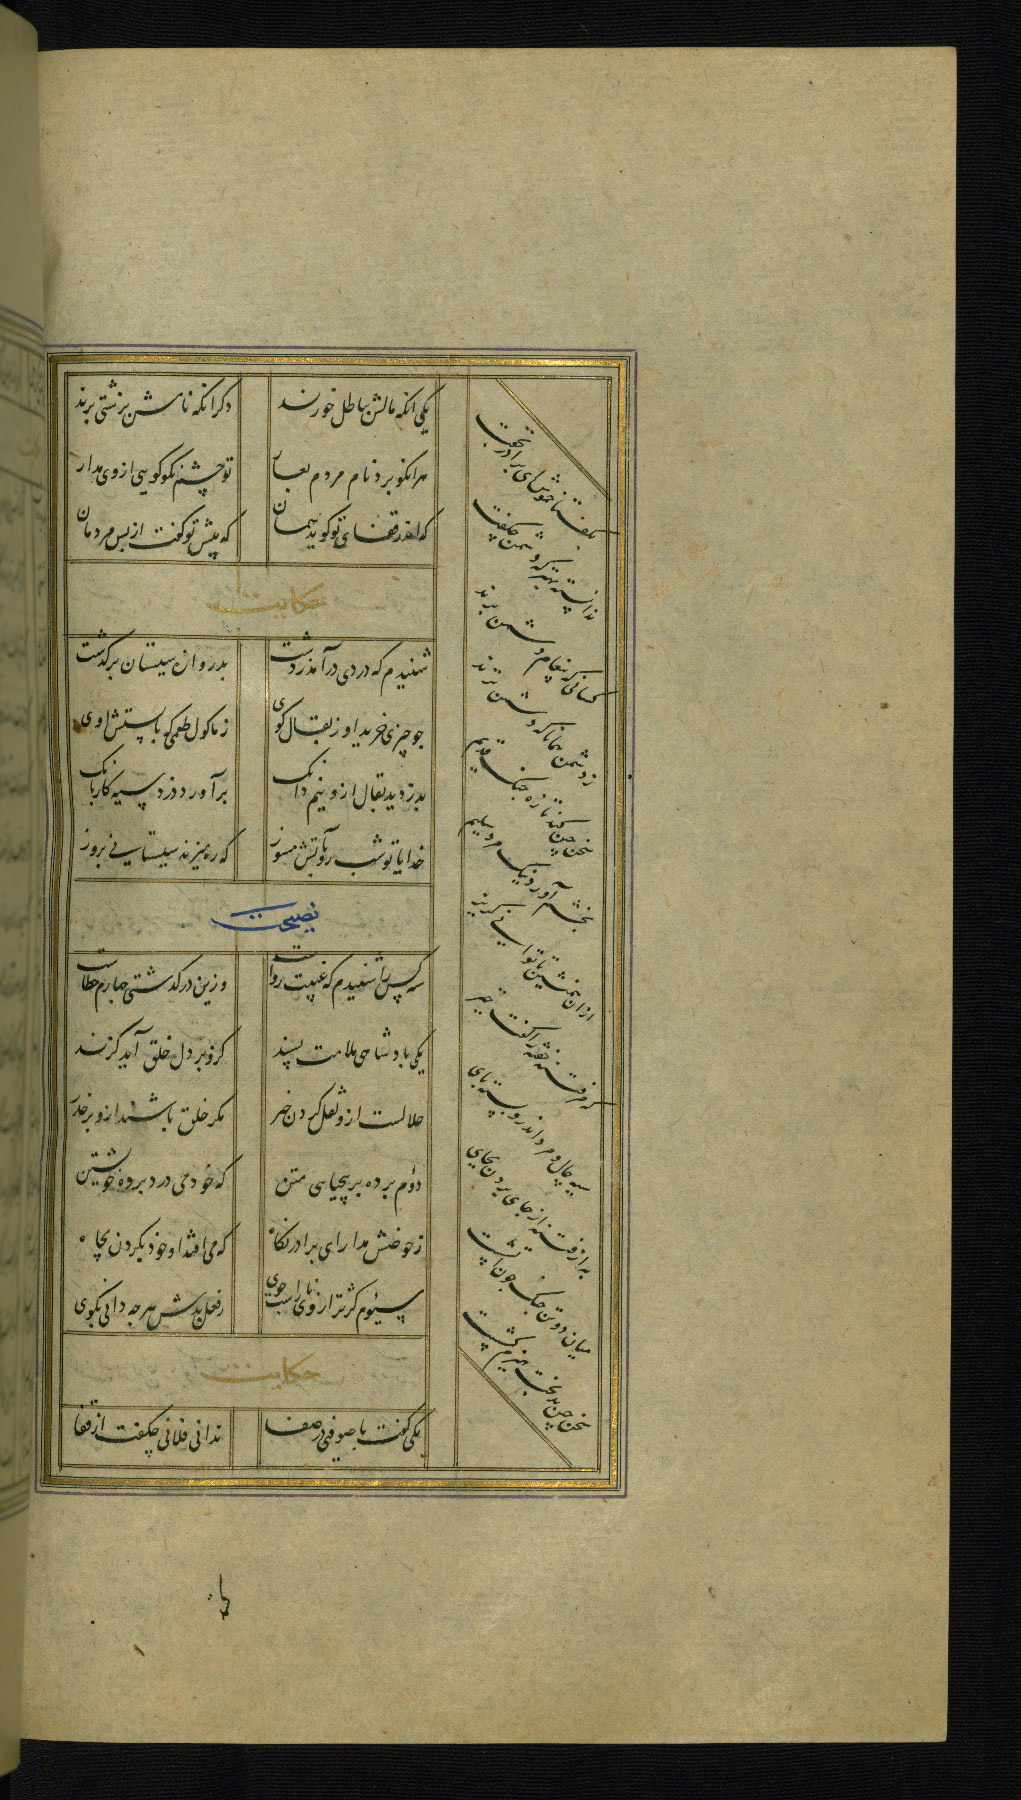 یکی انکه مالش بباطل خورند
دکر انکه نامش بزشتی برند
هر انکو برد نام مردم بعار
تو چشم نکو کویی از وی مدار
که اندر قفای تو کوید همان
که پیش تو کفت از پس مردمان
حکایت
شنیدم که دزدی درآمد ز دشت
بدروازه سیستان برکذشت
چو چیزی خرید او ز بقال کوی
ز ماکول طعمی که بایستش اوی
بدزدید بقال ازو نیم دانک
برآورد دزد سیه کار بانک
خدایا تو شب رو بآتش مسوز
که ره میزند سیستانی بروز
نصیحت
سه کس را شنیدم که غیبت رواست
وزین درکذشتی چهارم خطاست
یکی بادشاهی ملامت پسند
کزو بر دل خلق آید کزند
حلالست ازو نقل کردن خبر
مکر خلق باشند ازو بر حذر
دوم برده بر بیحیایی متن
که خود می درد برده خویشتن
ز حوضش مدار ای برادر نکاه
که می افتد او خود بکردن بچاه
سیوم کژترازوی ناراست خوی
ز فعل بدش هرچه دانی بکوی
حکایت
یکی کفت با صوفی در صفا
ندانی فلانی چکفت از قفا
بکفتا خموش ای برادر بخفت
ندانسته بهتر که دشمن چکفت
کسانی که پیغام دشمن برند
ز دشمن همانا که دشمن ترند
سخن چین کند تازه جنک قدیم
بخشم آورد نیک مرد سلیم
ازان همنشین تا توانی کریز
که مر فتنه خفته را کفت خیز
سیه چال و مرد اندرو بسته پای
به از فتنه از جای بردن بجای
میان دو تن جنک چون آتشست
سخن چین بدبخت هیزم کشست